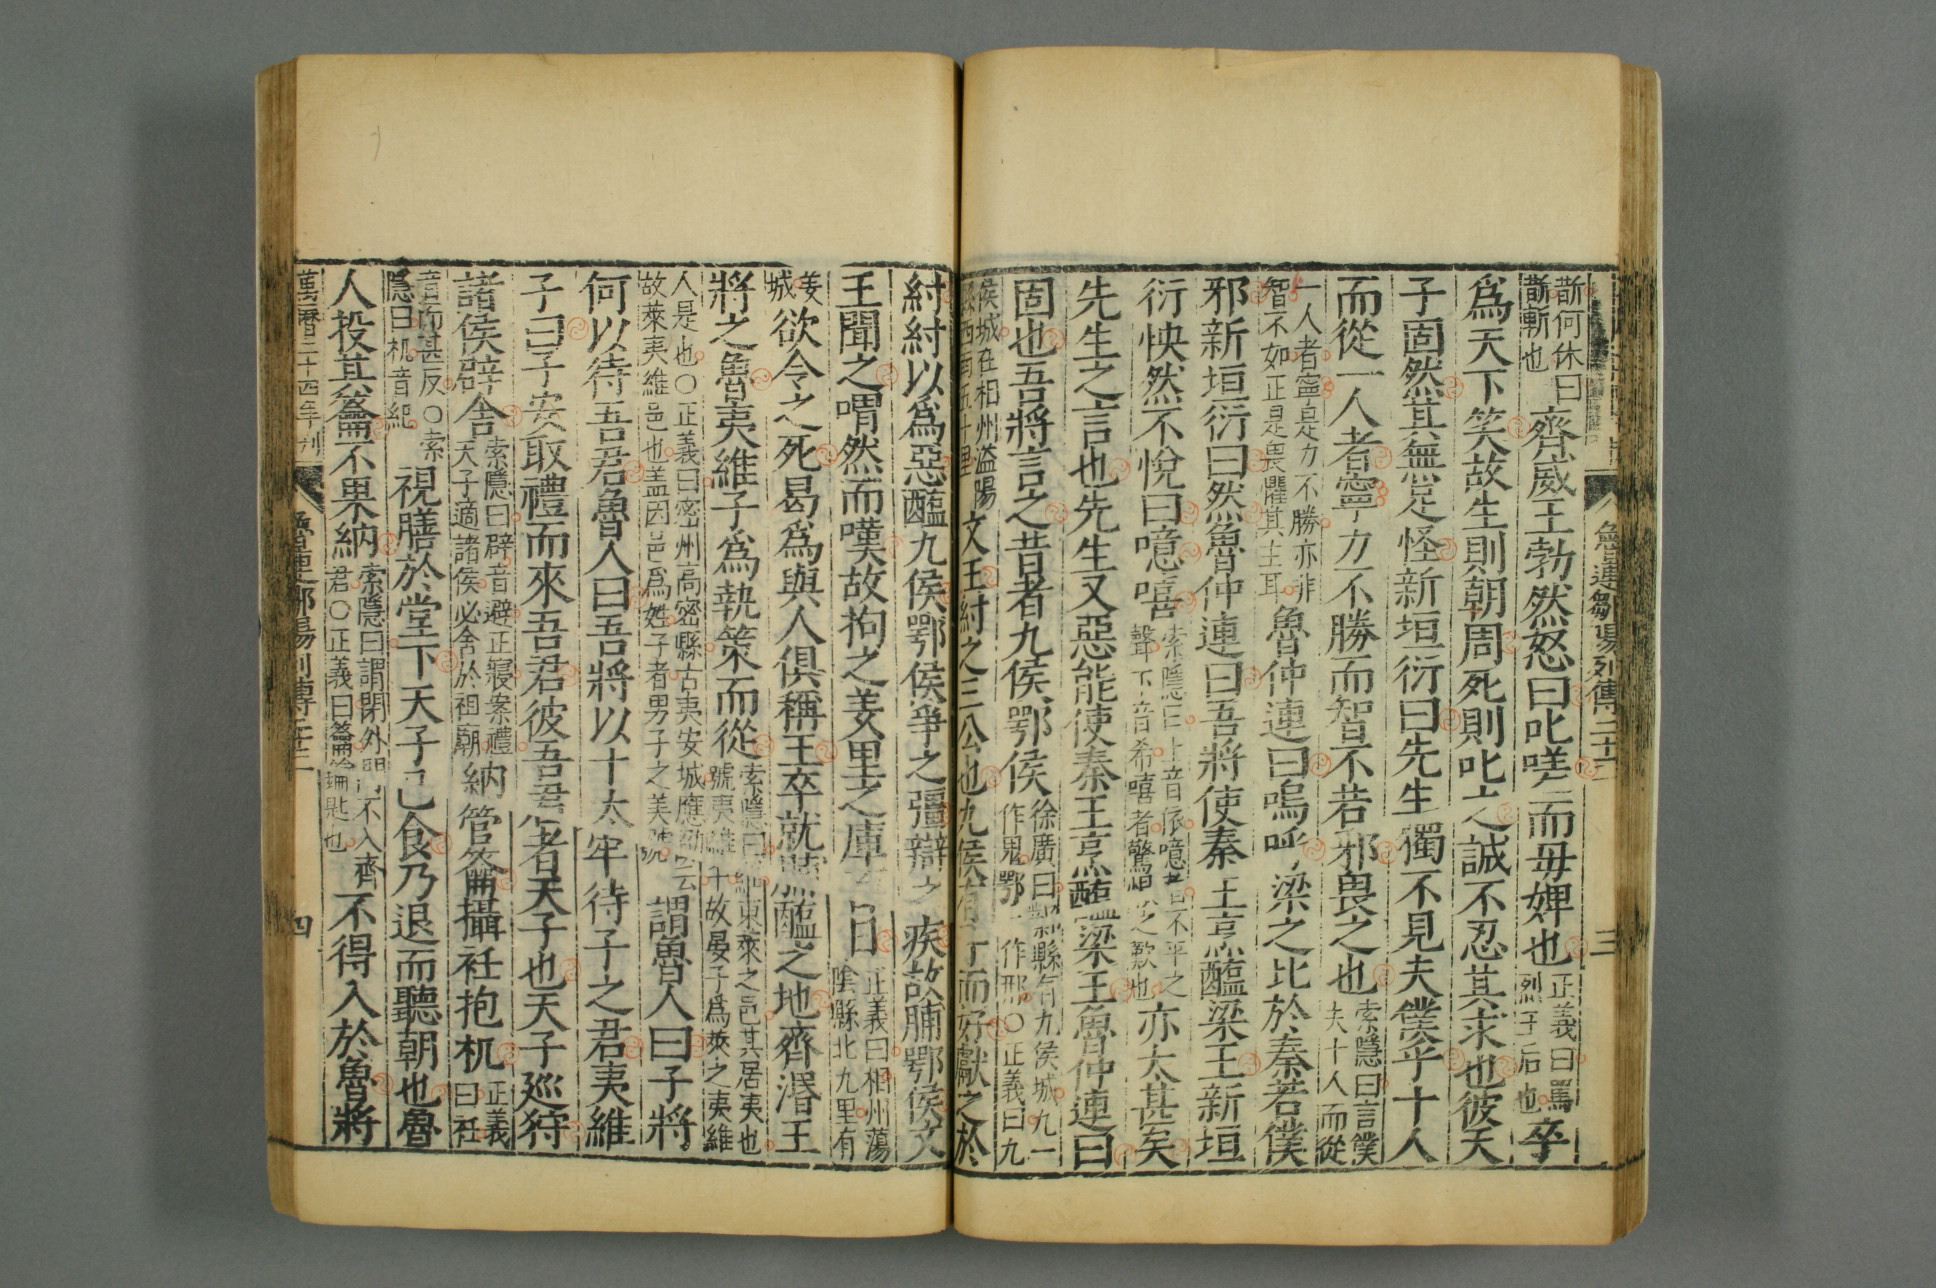 魯連鄒陽列傳二十三
三
斮何休曰
斮斬也
齊威王勃然怒曰叱嗟而母婢也
正義曰罵
烈王后也
卒
爲天下笑故生則朝周死則叱之誠不忍其求也彼天
子固然其無足怪新垣衍曰先生獨不見夫僕乎十人
而從一人者寧力不勝而智不若邪畏之也
索隱曰言僕
夫十人而從
一人者寧是力不勝亦非
智不如正是畏懼其主耳
魯仲連曰嗚呼梁之比於秦若僕
邪新垣衍曰然魯仲連曰吾將使秦王烹醢梁王新垣
衍怏然不悅曰噫嘻
索隱曰上音依噫者不平之
聲下音希嘻者驚恨之歎也
亦太甚矣
先生之言也先生又惡能使秦王烹醢梁王魯仲連曰
固也吾將言之昔者九侯鄂侯
徐廣曰鄴縣有九侯城九一
作鬼鄂一作邢○正義曰九
侯城在相州滏陽
縣西南五十里
文王紂之三公也九侯有子而好獻之於
紂紂以爲惡醢九侯鄂侯爭之彊辯之疾故脯鄂侯文
王聞之喟然而嘆故拘之羑里之庫百日
正義曰相州蕩
陰縣北九里有
羑
城
欲令之死曷爲與人俱稱王卒就脯醢之地齊湣王
將之魯夷維子爲執策而從
索隱曰維東萊之邑其居夷也
號夷維子故晏子爲萊之夷維
人是也○正義曰密州高密縣古夷安城應劭云
故萊夷維邑也蓋因邑爲姓子者男子之美號
謂魯人曰子將
何以待吾君魯人曰吾將以十太牢待子之君夷維
子曰子安取禮而來吾君彼吾君者天子也天子巡狩
諸侯辟舍
索隱曰辟音避正寢案禮
天子適諸侯必舍於祖廟
納管籥攝衽抱机
正義
曰衽
音而甚反○索
隱曰机音紀
視膳於堂下天子已食乃退而聽朝也魯
人投其籥不果納
索隱曰謂閉外門不入齊
君○正義曰籥鑰匙也
不得入於魯將
萬曆二十四年刊
魯連鄒陽列傳二十三
四